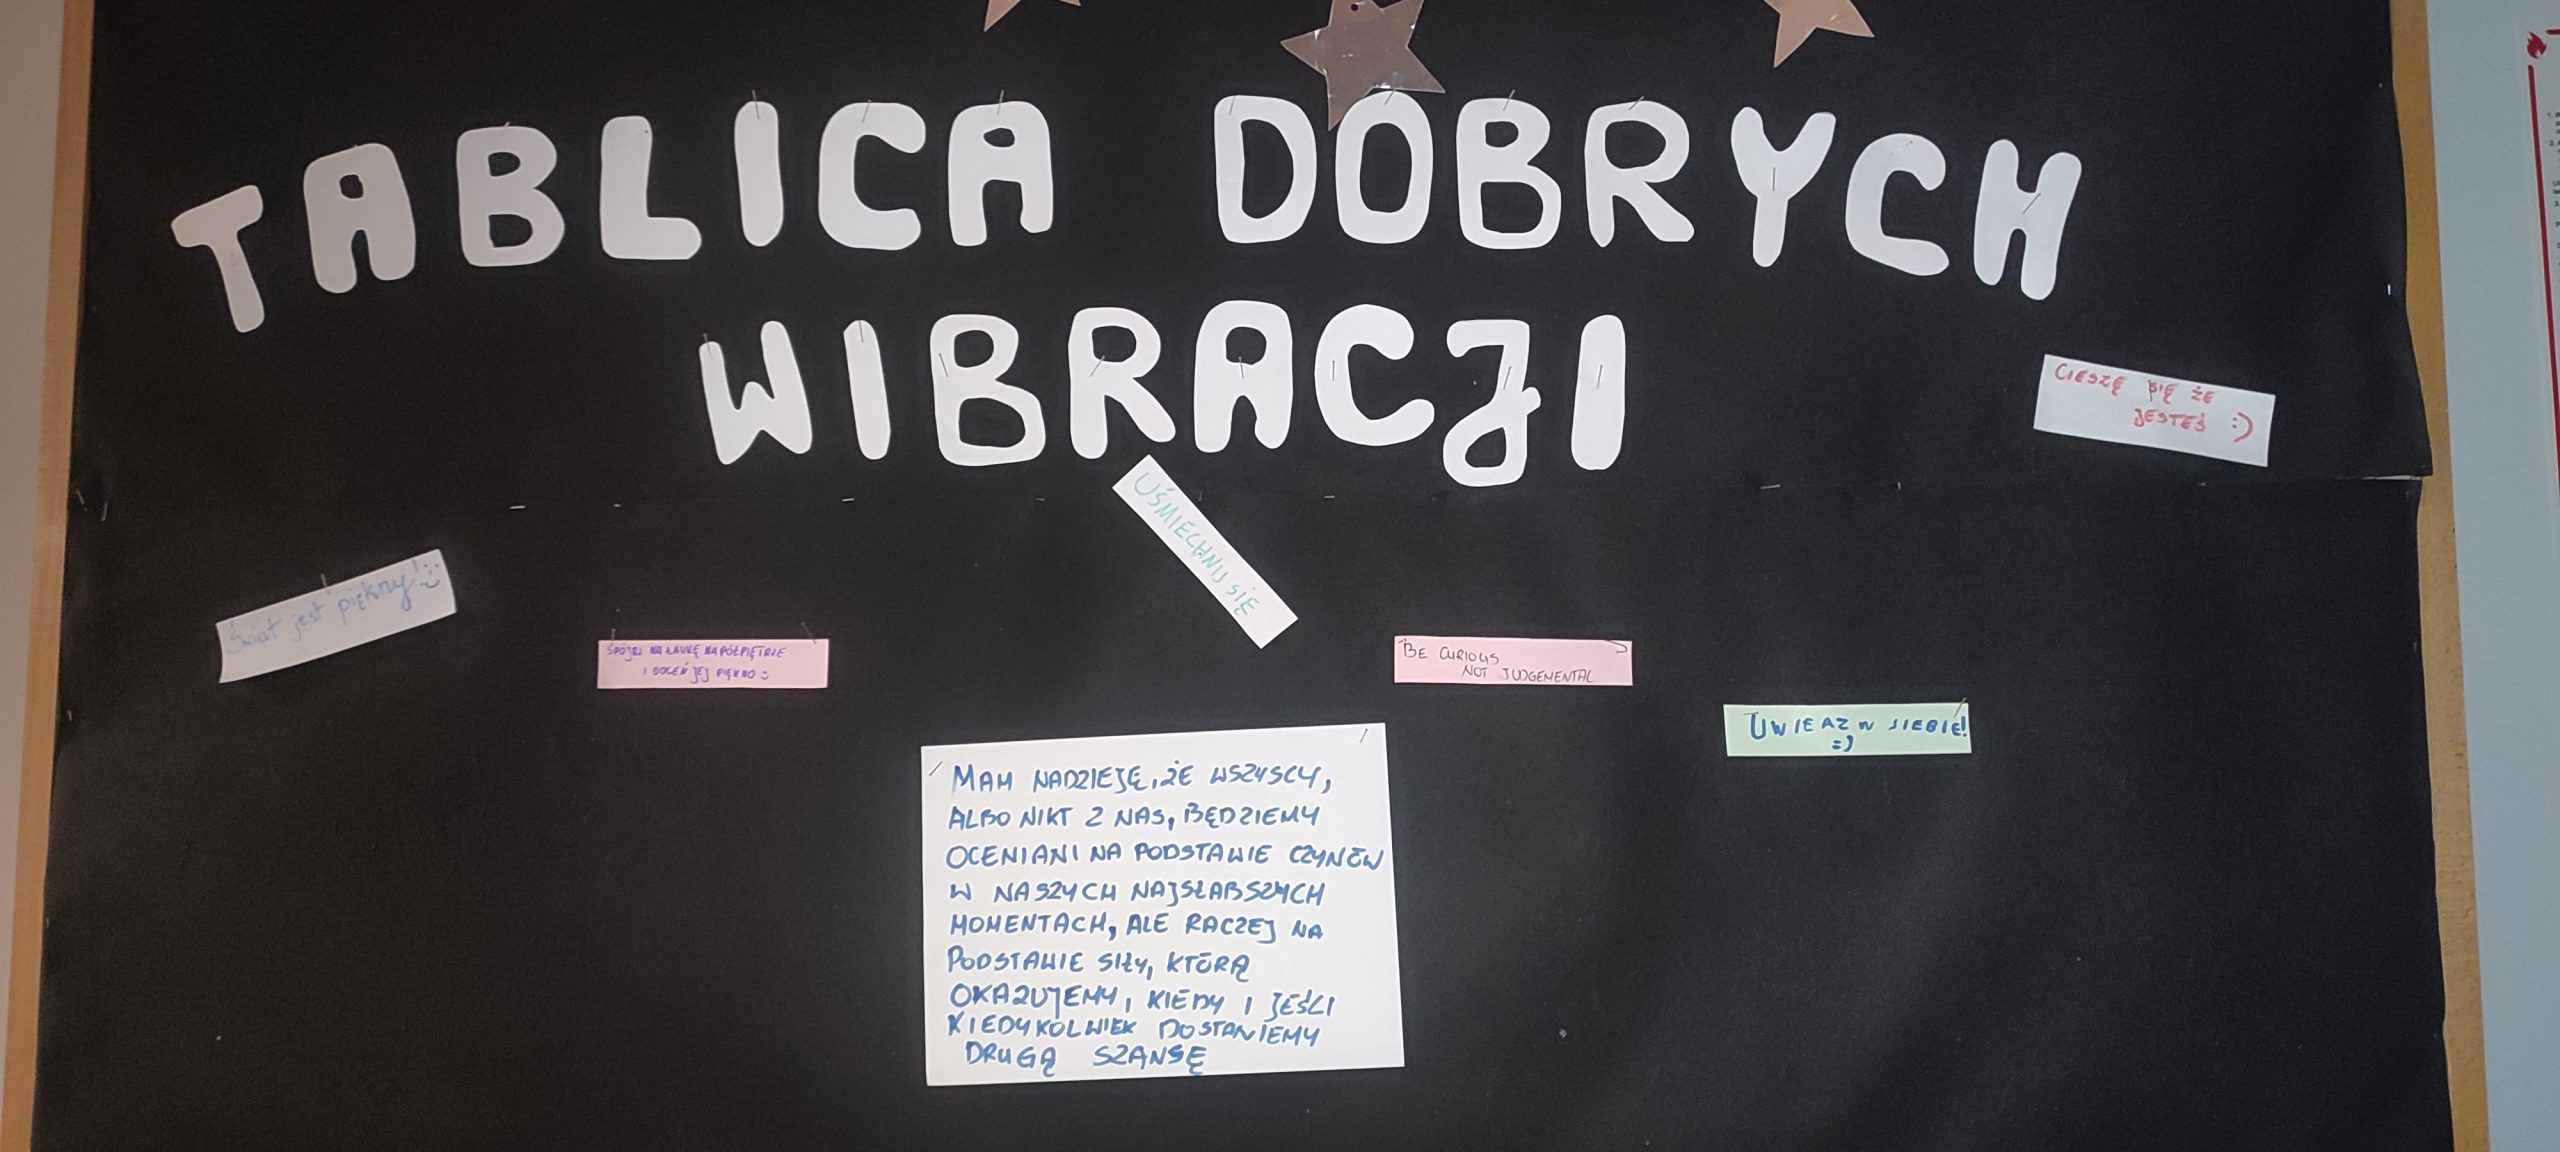 TABLICA DOBRYCH
WIBRACJI
CIESZĘ SIĘ ŻE
JESTEŚ :)
UŚMIECHNIJ SIĘ
Świat jest piękny! :)
SPÓJRZ NA ŁAWKĘ NA PÓŁPIĘTRZE
I DOCEŃ JEJ PIĘKNO :)
BE CURIOUS
NOT JUDGEMENTAL
UWIERZ W SIEBIE!
=)
MAM NADZIEJĘ, ŻE WSZYSCY,
ALBO NIKT Z NAS, BĘDZIEMY
OCENIANI NA PODSTAWIE CZYNÓW
W NASZYCH NAJSŁABSZYCH
MOMENTACH, ALE RACZEJ NA
PODSTAWIE SIŁY, KTÓRĄ
OKAZUJEMY, KIEDY I JEŚLI
KIEDYKOLWIEK DOSTANIEMY
DRUGĄ SZANSĘ